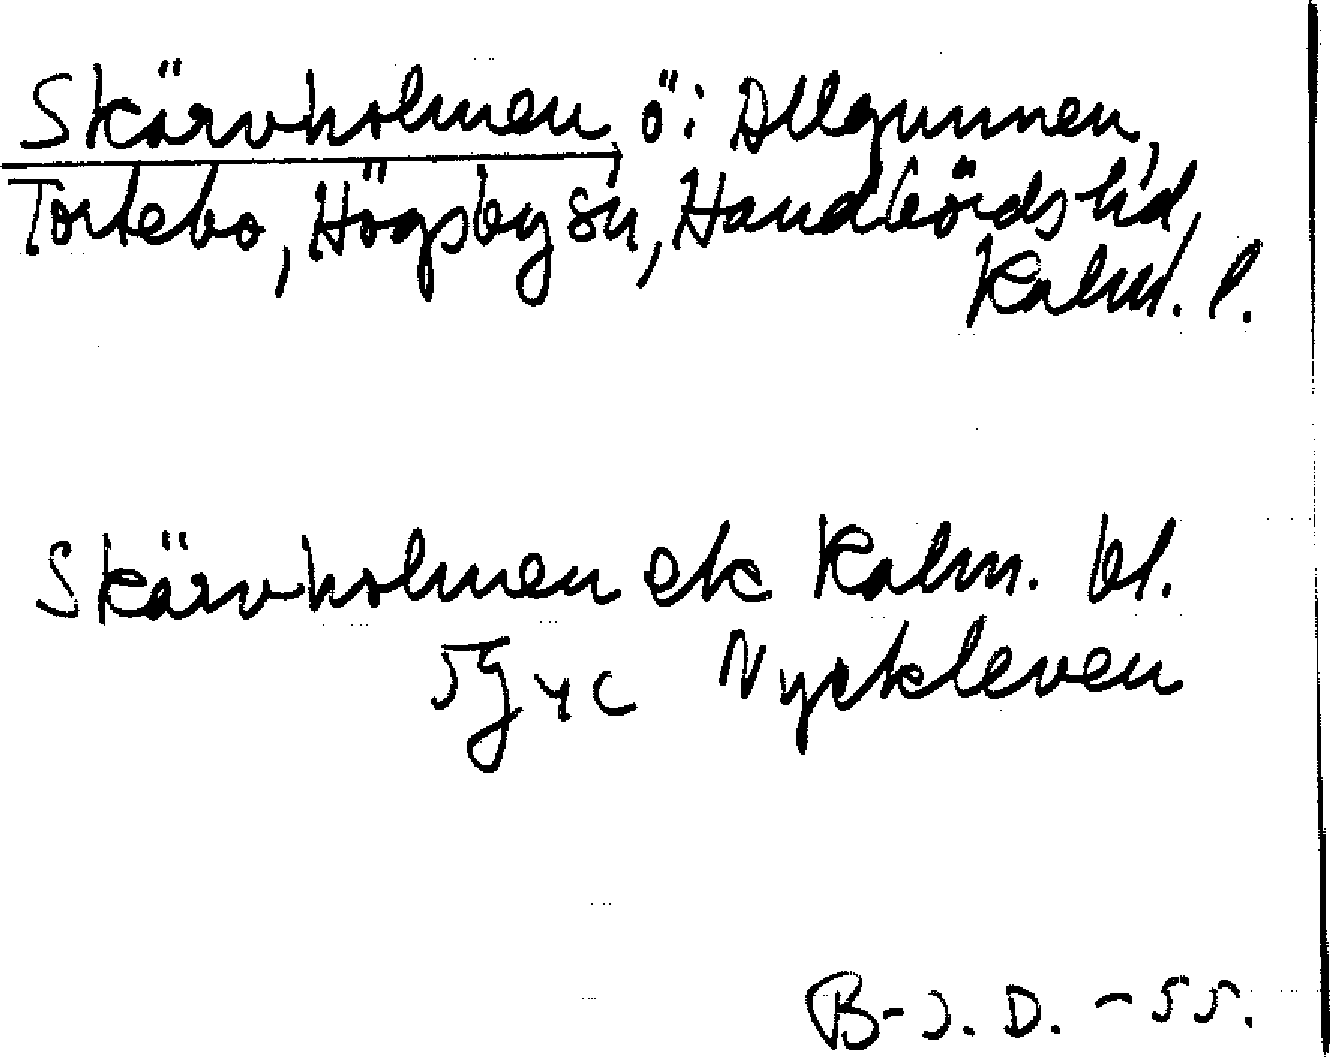 Skärvholmen, ö i Allgunnen,
Tortebo, Högsby sn, Handbörds hd,
Kalm. l.
Skärvholmen ek Kalm. bl.
5g4c Nyckleven
B-J. D. -55.